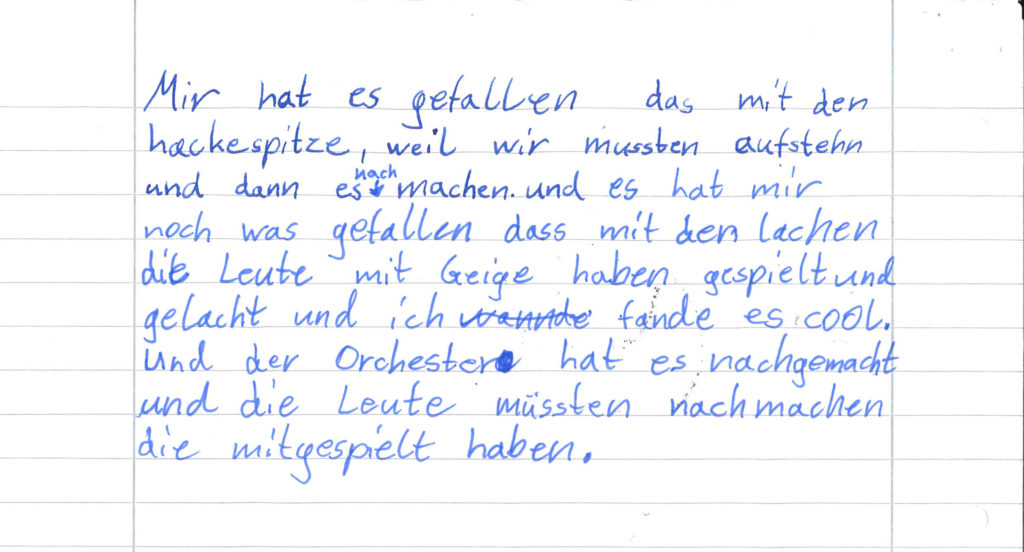 Mir hat es gefallen das mit den
hackespitze, weil wir mussten aufstehn
und dann es nach machen. und es hat mir
noch was gefallen dass mit dem lachen
die Leute mit Geige haben gespielt und
gelacht und ich wannde fande es cool.
Und der Orchester hat es nachgemacht
und die Leute müssten nachmachen
die mitgespielt haben.